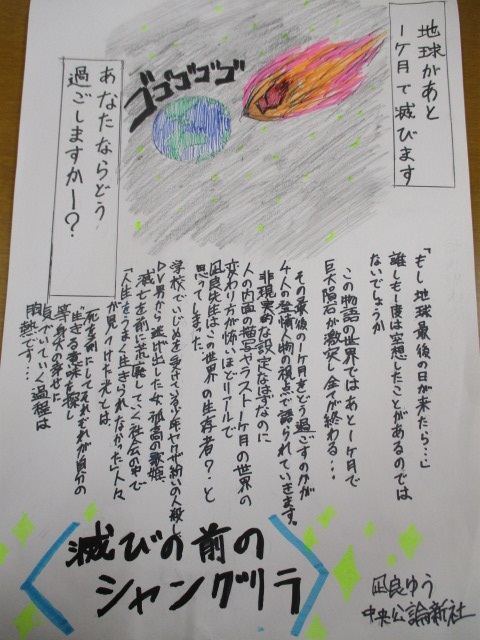 地球があと
1ヶ月で滅びます
ゴゴゴゴゴ
あなたならどう
過ごしますかー？
「もし地球最後の日が来たら…」
誰しも一度は空想したことがあるのでは
ないでしょうか
この物語の世界ではあと1ヶ月で
巨大隕石が激突し全てが終わる…
その最後の1ヶ月をどう過ごすのかが
4人の登場人物の視点で語られていきます。
非現実的な設定なはずなのに
人の内面の描写やラスト一ヶ月の世界の
変わり方が怖いほどリアルで
凪良先生は、この世界の生存者？と
思ってしまった。
学校でいじめを受けている少年、ヤクザ紛いの人殺し、
DV男から逃げ出した女、孤高の歌姫
滅亡を前に荒廃していく社会の中で
「人生をうまく生きられなかった」人々
が見つけた光とは
死を前にしてそれぞれが自分の
“生きる意味”を探し
等身大の幸せに
気づいていく過程は
胸熱です…
滅びの前の
シャングリラ
凪良ゆう
中央公論新社